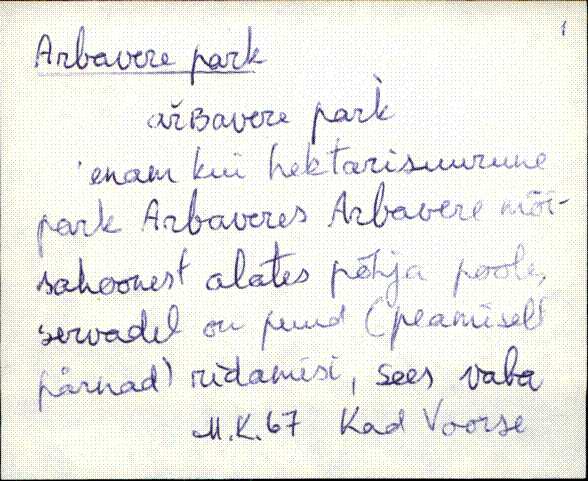 1
Arbavere park
ar̆ʙavere par̀k
enam kui hektarisuurune
park Arbaveres Arbavere mõi-
sahoonest alates põhja poole,
servadel on puud (peamiselt
pärnad) ridamisi, sees vaba
M.K.67 Kad Voorse